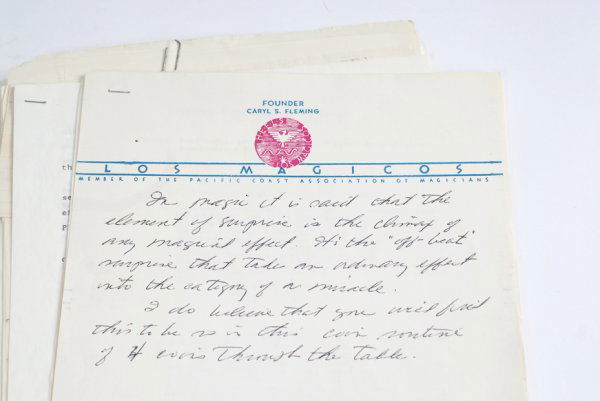 FOUNDER
CARYL S. FLEMING
LOS MAGICOS
MEMBER OF THE PACIFIC COAST ASSOCIATION OF MAGICIANS
In magic it is said that the
element of surprise is the climax of
any magical effect. It's the "off-beat"
surprise that takes an ordinary effect
into the category of a miracle.
I do believe that you will find
this to be so in this coin routine
of 4 coins through the table.
th
se
P